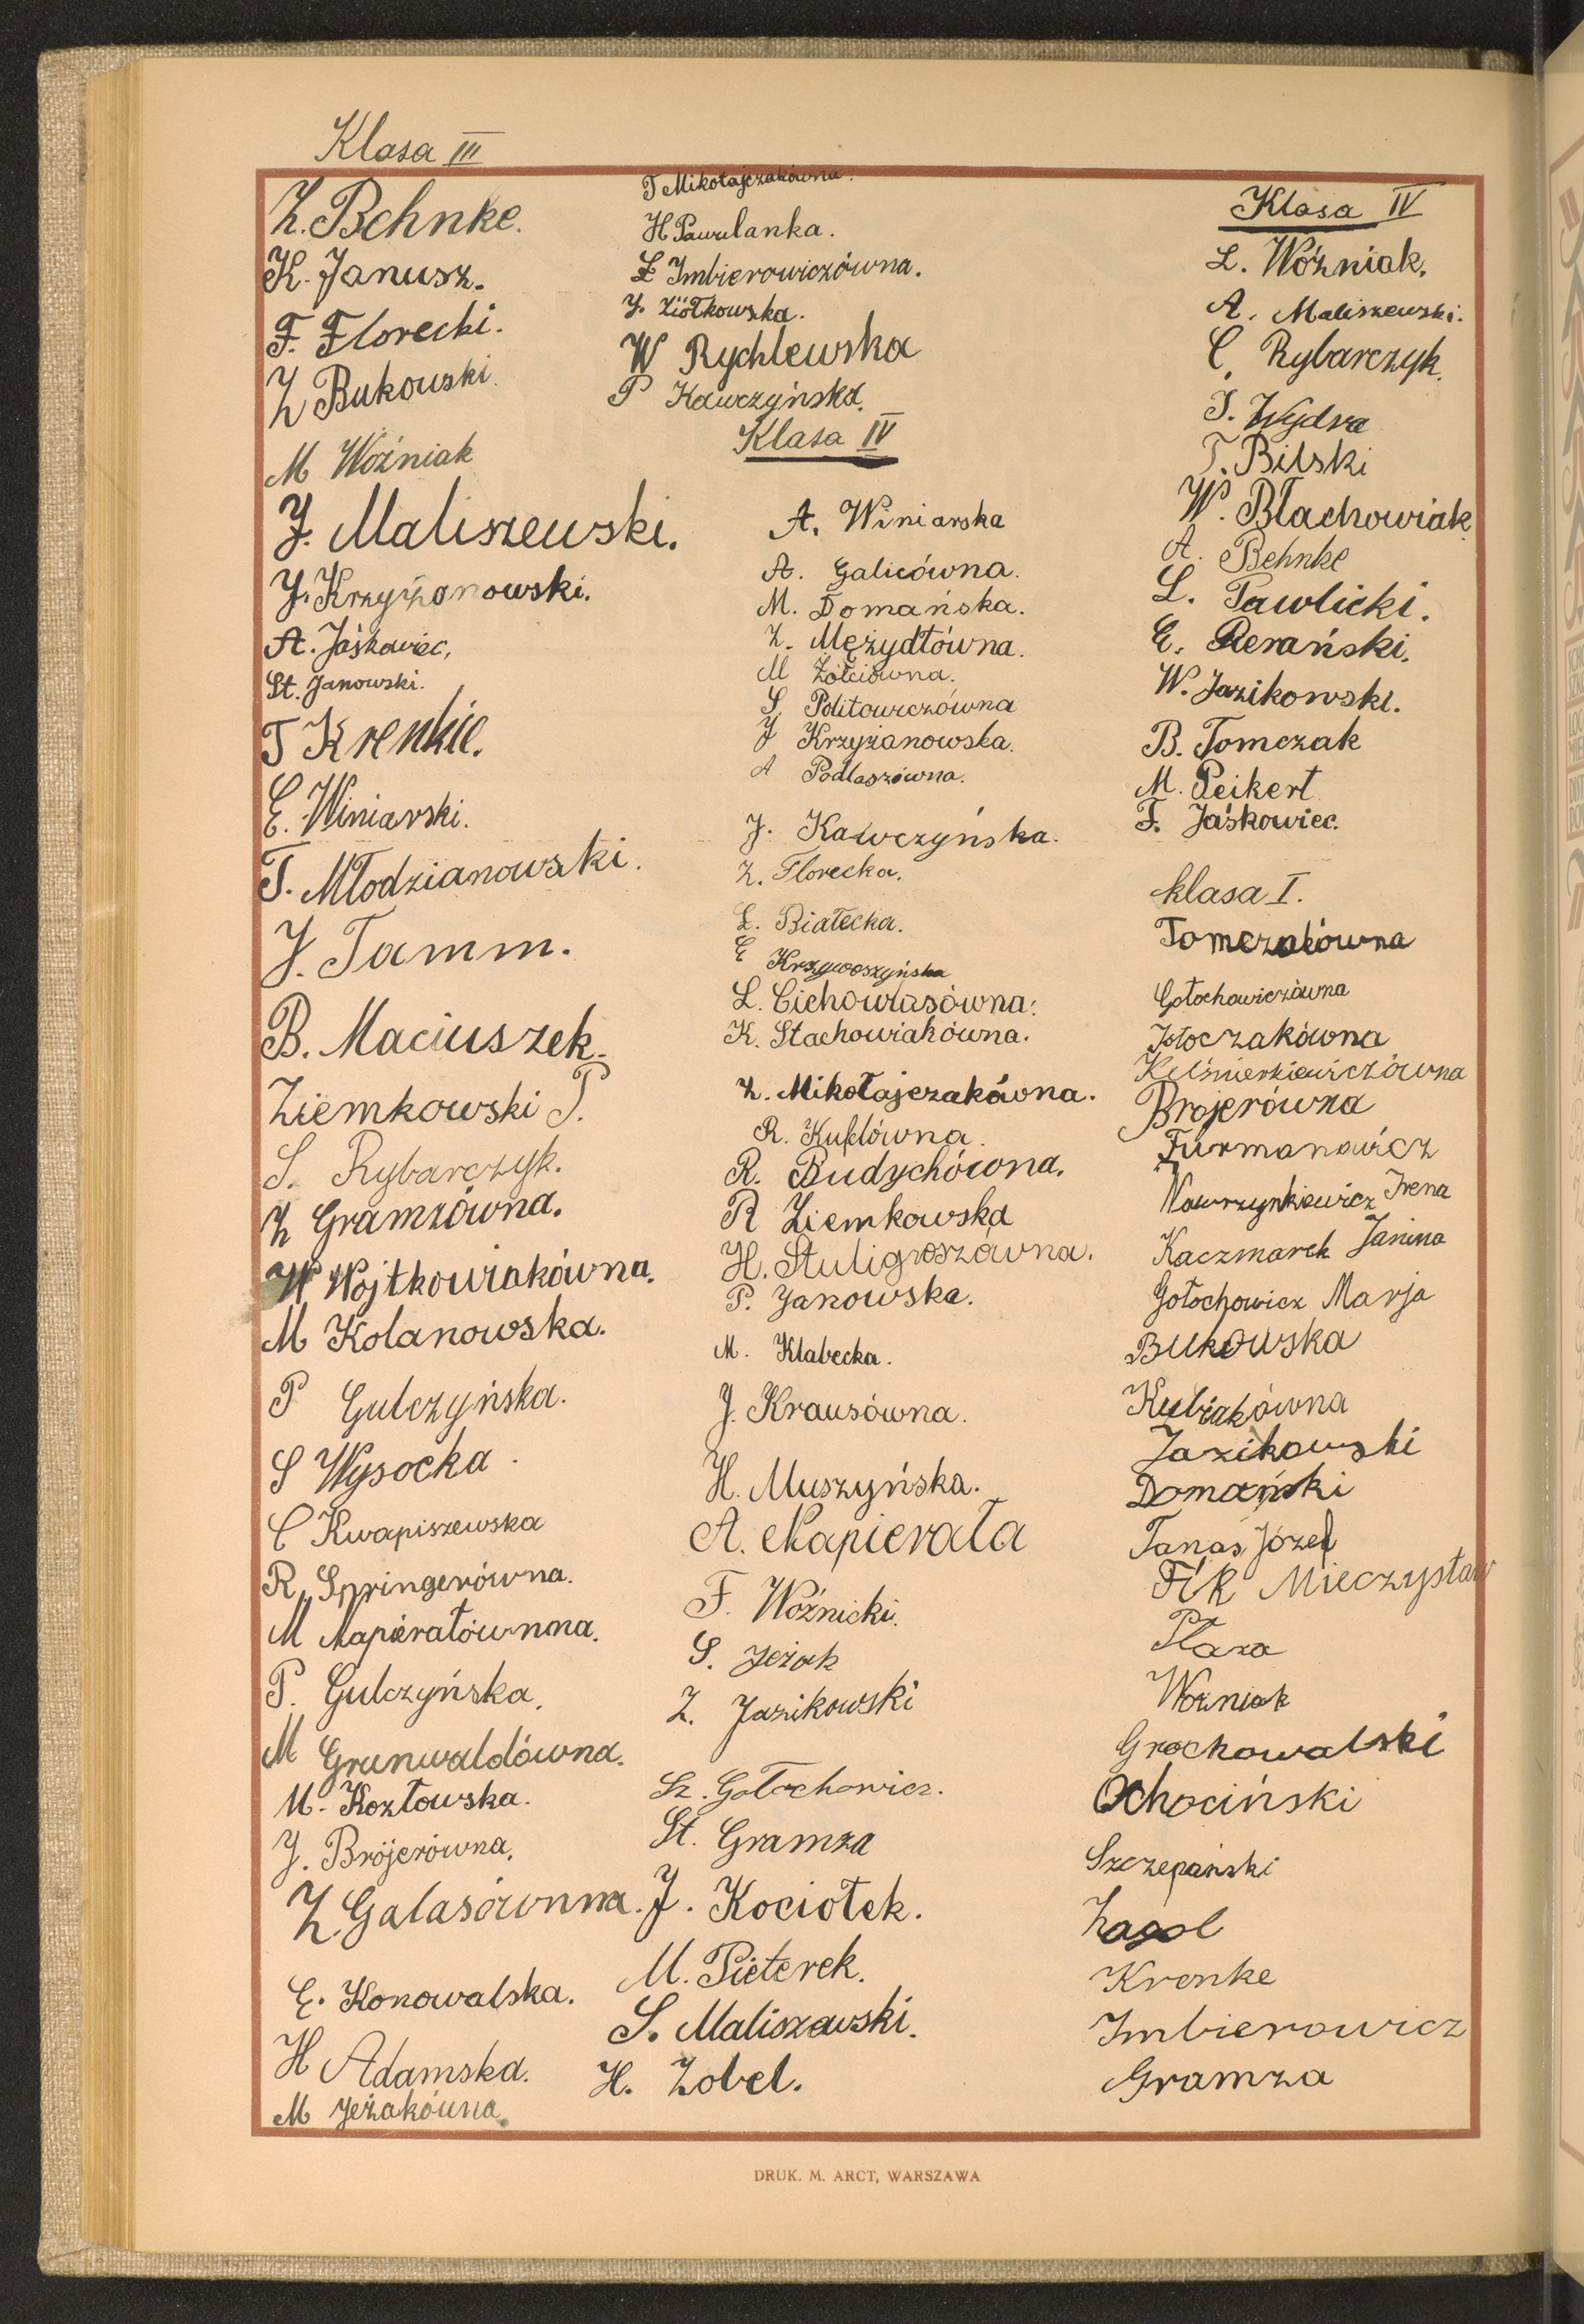 Klasa III
Z. Behnke.
K. Janusz.
F. Florecki.
Z Bukowski.
M Woźniak
J. Maliszewski.
J. Krzyżanowski.
A. Jaśkowiec,
St. Janowski.
T Krenkie.
E. Winiarski.
T. Młodzianowski.
J. Tamm.
B. Maciuszek.
Ziemkowski T.
S. Rybarczyk.
Z Gramzówna.
W Wojtkowiakówna.
M Kolanowska.
P Gulczyńska.
S Wysocka.
C Kwapiszewska
R. Springerówna.
M Napierałównna.
P. Gulczyńska.
M Grunwaldówna.
M. Kozłowska.
J. Bröjerówna.
Z. Galasównna.
E. Konowalska.
H Adamska.
M Jeżakówna.
T Mikołajczakówna.
H Pawulanka.
Ł Imbierowiczówna.
J. Ziółkowska.
W Rychlewska
P Kawczyńska.
Klasa IV
A. Winiarska
A. Galicówna.
M. Domańska.
Z. Mężydłówna.
M Żółciówna.
S. Politowiczówna
J Krzyżanowska.
A Podlaszówna.
J. Kawczyńska.
Z. Florecka.
L. Białecka.
E Krzywoszyńska
L. Cichowlasówna.
K. Stachowiakówna.
Z. Mikołajczakówna.
R. Kuflówna.
R. Budychówna.
R Ziemkowska
H. Stuligroszówna.
P. Janowska.
M. Klabecka.
J. Krausówna.
H. Muszyńska.
A. Napierała
F. Woźnicki.
S. Jeżak
Z. Jazikowski
Sz. Gołochowicz.
St. Gramza
J. Kociołek.
M. Pieterek.
S. Maliszewski.
H. Zobel.
Klasa IV
L. Woźniak.
A. Maliszewski.
C. Rybarczyk.
J. Wydra
T. Bilski
W. Błachowiak
A. Behnke
L. Pawlicki.
E. Rerański.
W. Jazikowski.
B. Tomczak
M. Peikert
F. Jaśkowiec.
klasa I.
Tomczakówna
Gołochowiczówna
Tłoczakówna
Kuśnierkiewiczówna
Brojerówna
Furmanowicz
Nawrzynkiewicz Irena
Kaczmarek Janina
Gołochowicz Marja
Bukowska
Kubiakówna
Jazikowski
Domański
Tanaś Józef
Fik Mieczysław
Płaza
Woźniak
Grochowalski
Ochociński
Szczepański
Zagol
Krenke
Imbierowicz
Gramza
DRUK. M. ARCT, WARSZAWA